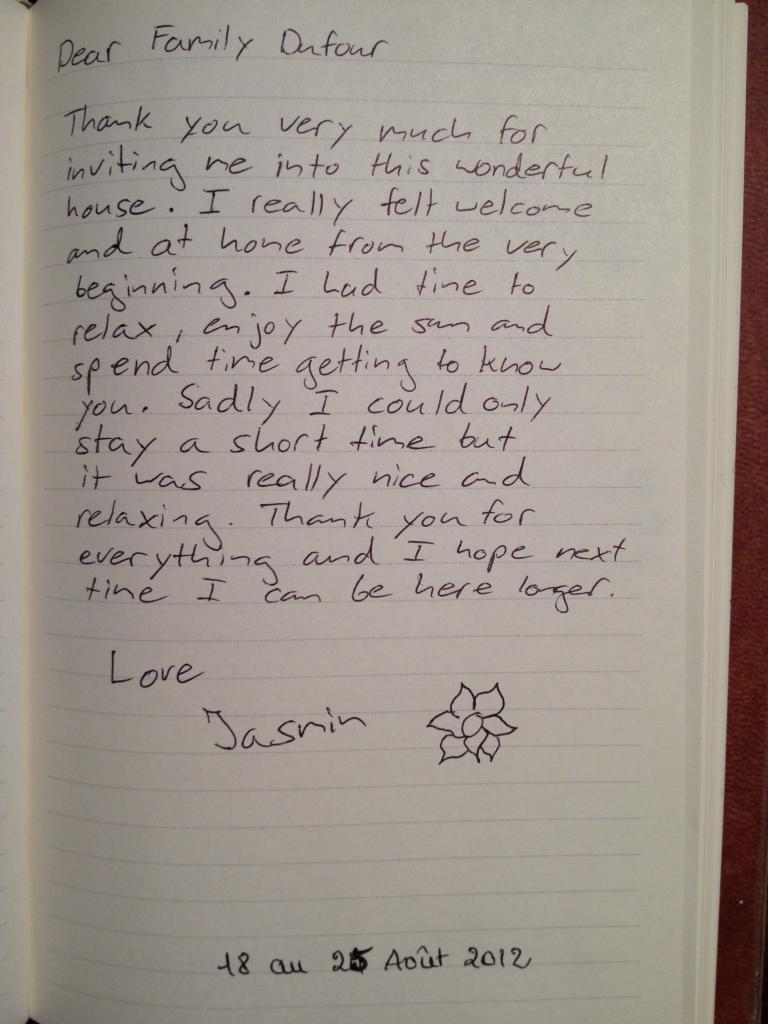 Dear Family Dufour
Thank you very much for
inviting me into this wonderful
house. I really felt welcome
and at home from the very
beginning. I had time to
relax, enjoy the sun and
spend time getting to know
you. Sadly I could only
stay a short time but
it was really nice and
relaxing. Thank you for
everything and I hope next
time I can be here longer.
Love
Jasmin
18 au 25 Août 2012